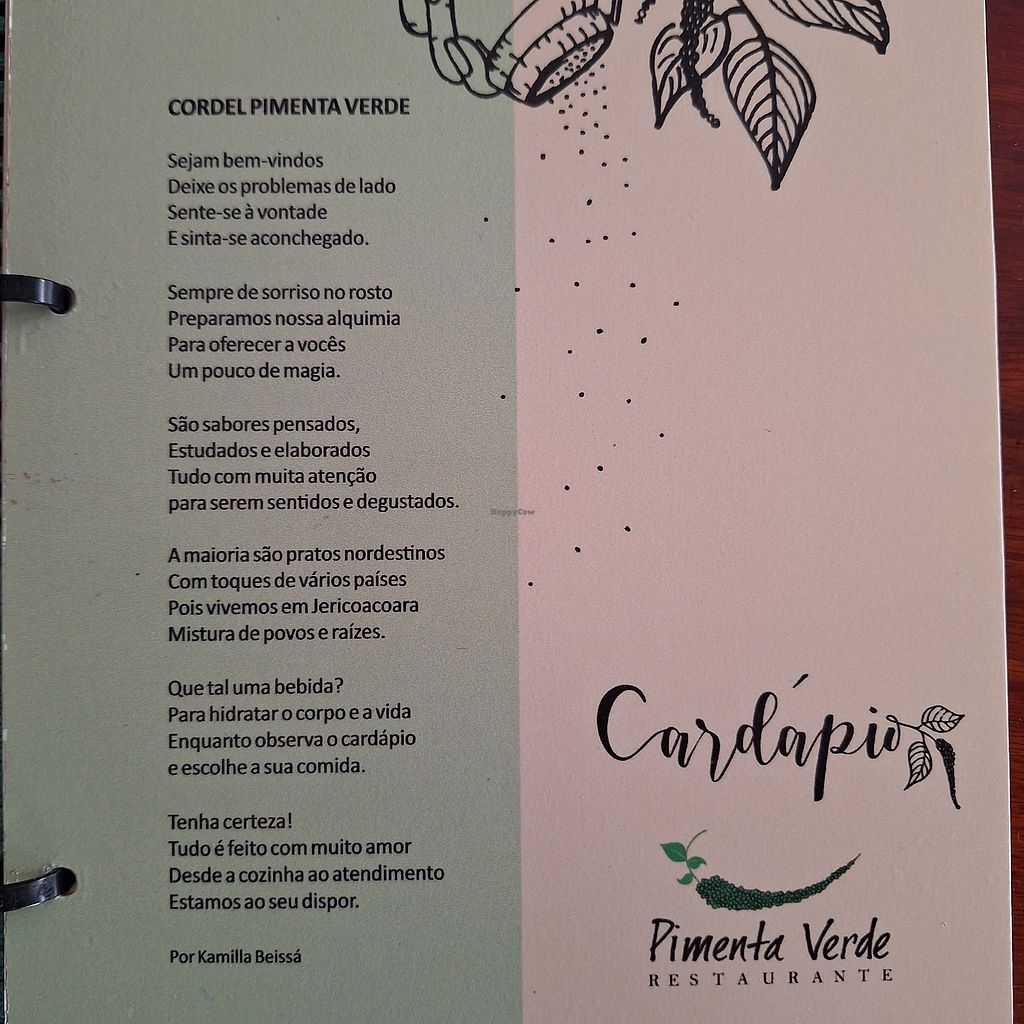 CORDEL PIMENTA VERDE
Sejam bem-vindos
Deixe os problemas de lado
Sente-se à vontade
E sinta-se aconchegado.
Sempre de sorriso no rosto
Preparamos nossa alquimia
Para oferecer a vocês
Um pouco de magia.
São sabores pensados,
Estudados e elaborados
Tudo com muita atenção
para serem sentidos e degustados.
A maioria são pratos nordestinos
Com toques de vários países
Pois vivemos em Jericoacoara
Mistura de povos e raízes.
Que tal uma bebida?
Para hidratar o corpo e a vida
Enquanto observa o cardápio
e escolhe a sua comida.
Tenha certeza!
Tudo é feito com muito amor
Desde a cozinha ao atendimento
Estamos ao seu dispor.
Por Kamilla Beissá
HappyCow
Cardápio
Pimenta Verde
RESTAURANTE